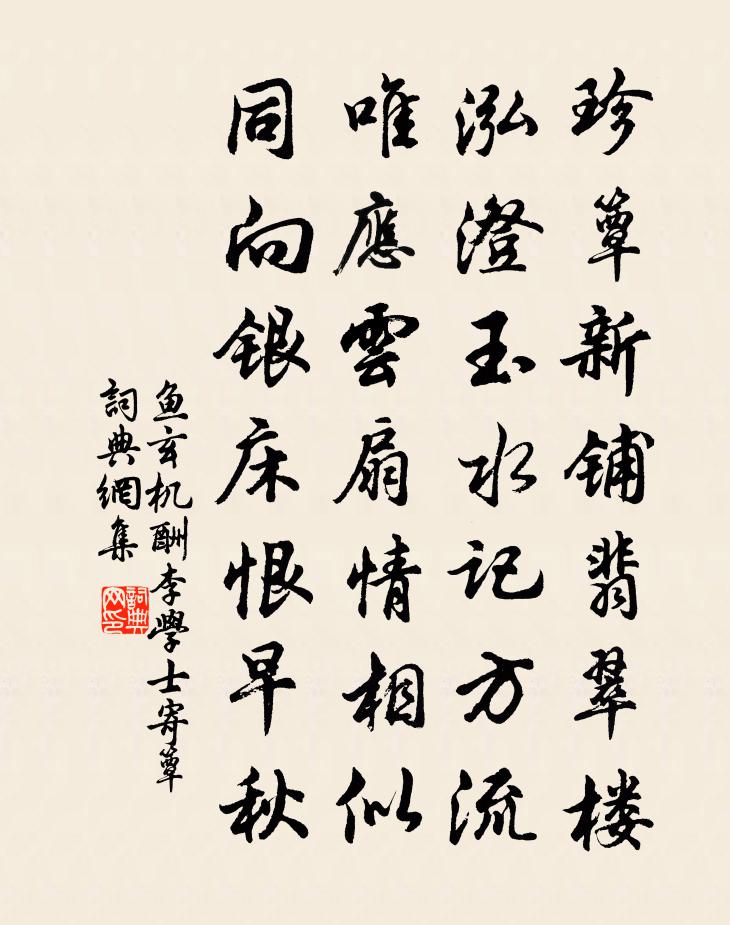 珍簟新铺翡翠楼
泓澄玉水记方流
唯應雲扇情相似
同向银床恨早秋
鱼玄机酬李學士寄簟
詞典網集
詞典网印